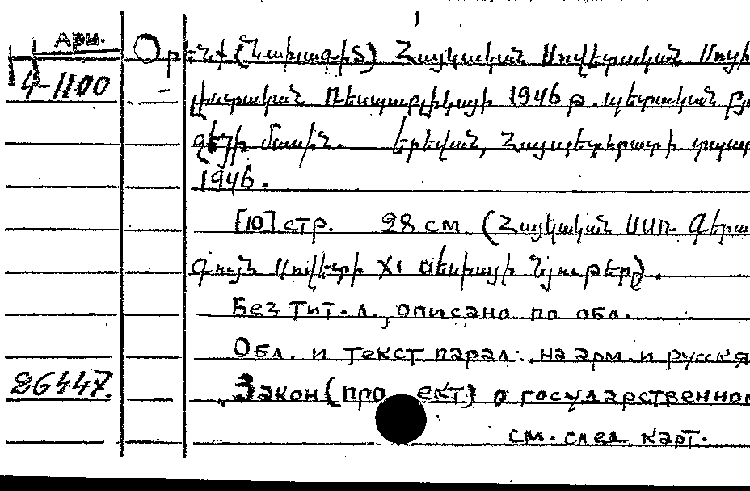 Арм.
4-1100
Օրենք (Նախագիծ) Հայկական Սովետական Սոցի
լիստական Ռեսպուբլիկայի 1946 թ. պետական բյու
ջեյի մասին. Երևան, Հայպետհրատի տպար
1946.
[10] стр. 28 см. (Հայկական ՍՍՌ Գերա
գույն Սովետի XI սեսիայի նյութերը).
Без тит. л., описано по обл.
Обл. и текст парал. на арм. и русско
26447.
Закон (про ект) о государственном
см. след. карт.